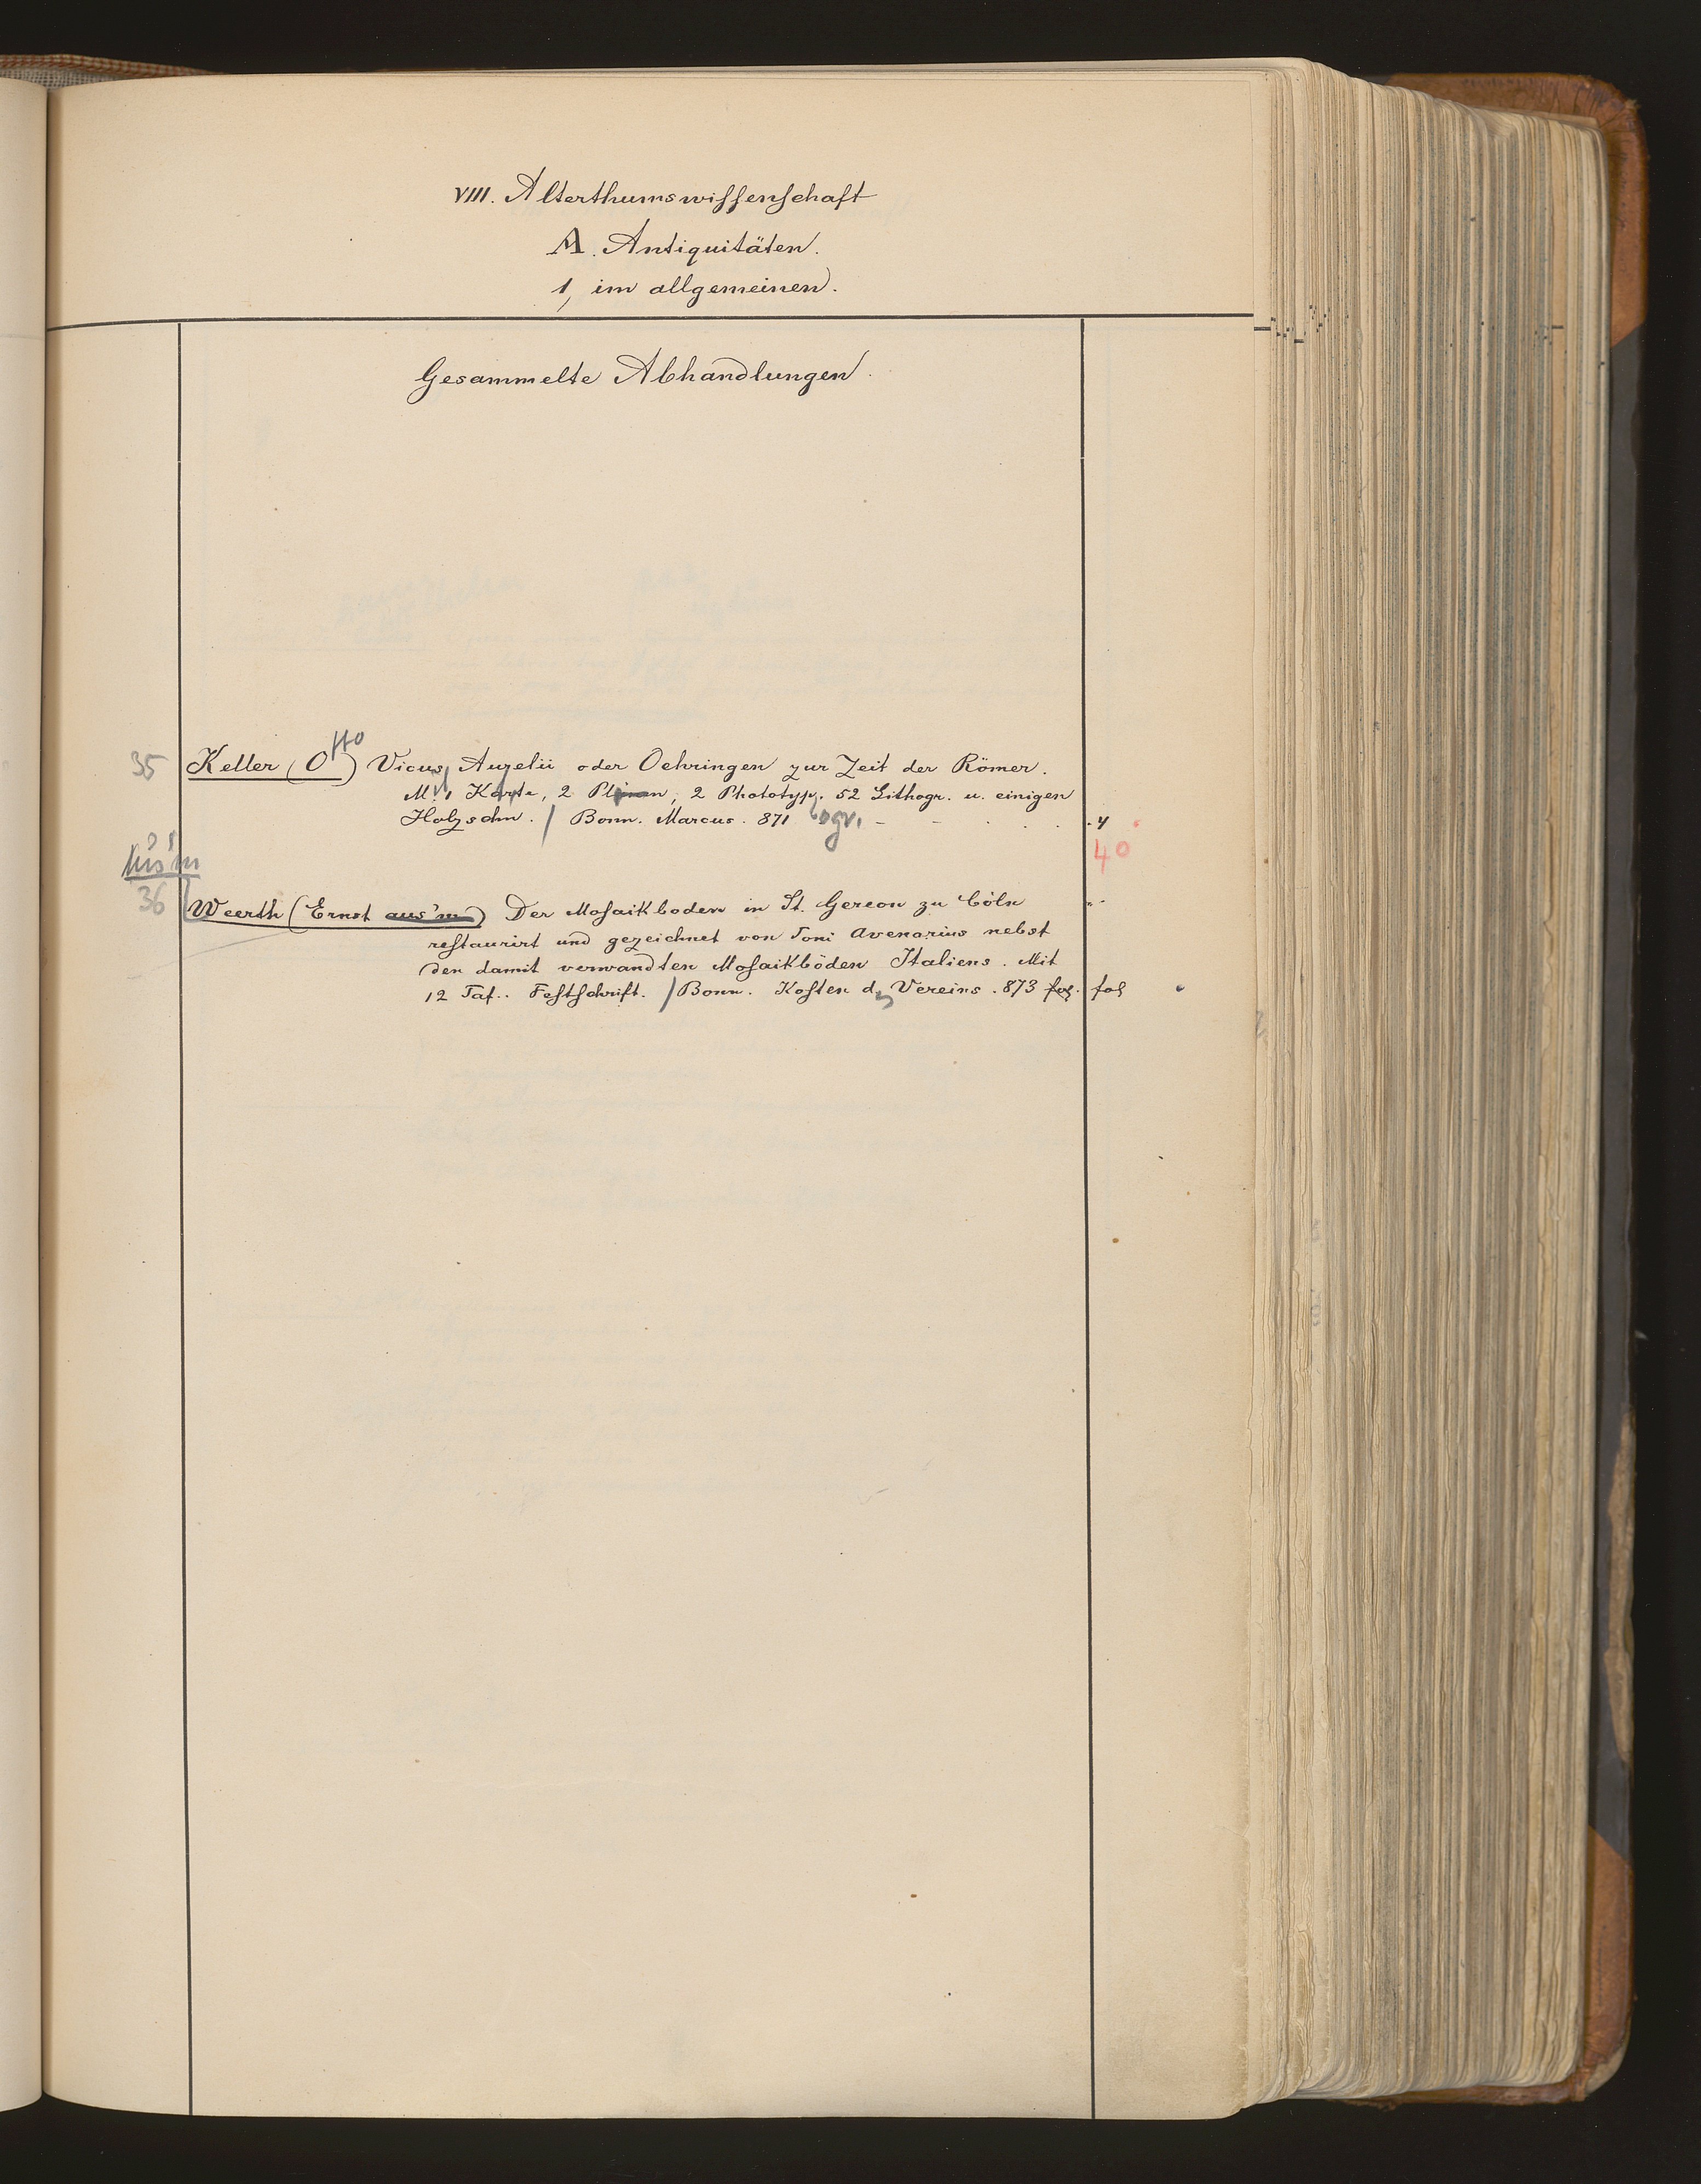 VIII. Alterthumswissenschaft
A. Antiquitäten.
1, im allgemeinen.
Gesammelte Abhandlungen.
35 Keller (Otto) Vicus Aurelii oder Oehringen zur Zeit der Römer.
M. 1 Karte, 2 Plänen, 2 Phototyp. 52 Lithogr. u. einigen
Holzschn. / Bonn. Marcus. 871 . 4
40
Aus'm
36 Weerth (Ernst aus'm) Der Mosaikboden in St. Gereon zu Cöln
restaurirt und gezeichnet von Toni Avenarius nebst
den damit verwandten Mosaikböden Italiens. Mit
12 Taf.. Festschrift. / Bonn. Kosten ds Vereins. 873 fol. fol